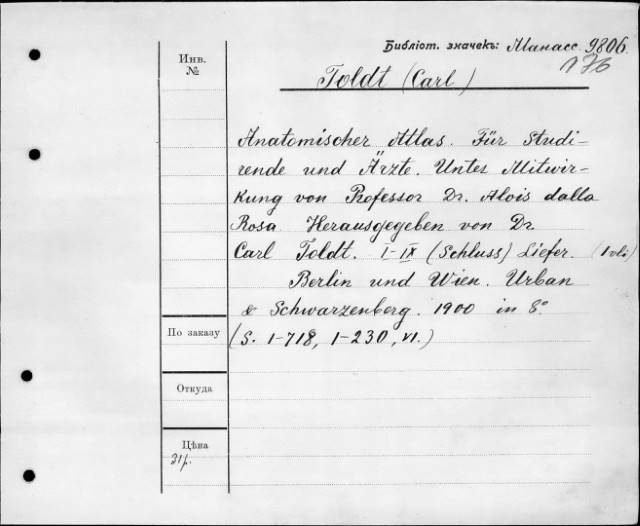 Библіот. значекъ: Манасс. 9806.
176
Инв.
№
Toldt (Carl)
Anatomischer Atlas. Für Studi-
rende und Ärzte. Unter Mitwir-
kung von Professor Dr. Alois dalla
Rosa Herausgegeben von Dr.
Carl Toldt. I-IX (Schluss) Liefer. (1 vol)
Berlin und Wien. Urban
& Schwarzenberg. 1900 in 8°
По заказу
(S. 1-718, 1-230, VI.)
Откуда
Цѣна
31р.